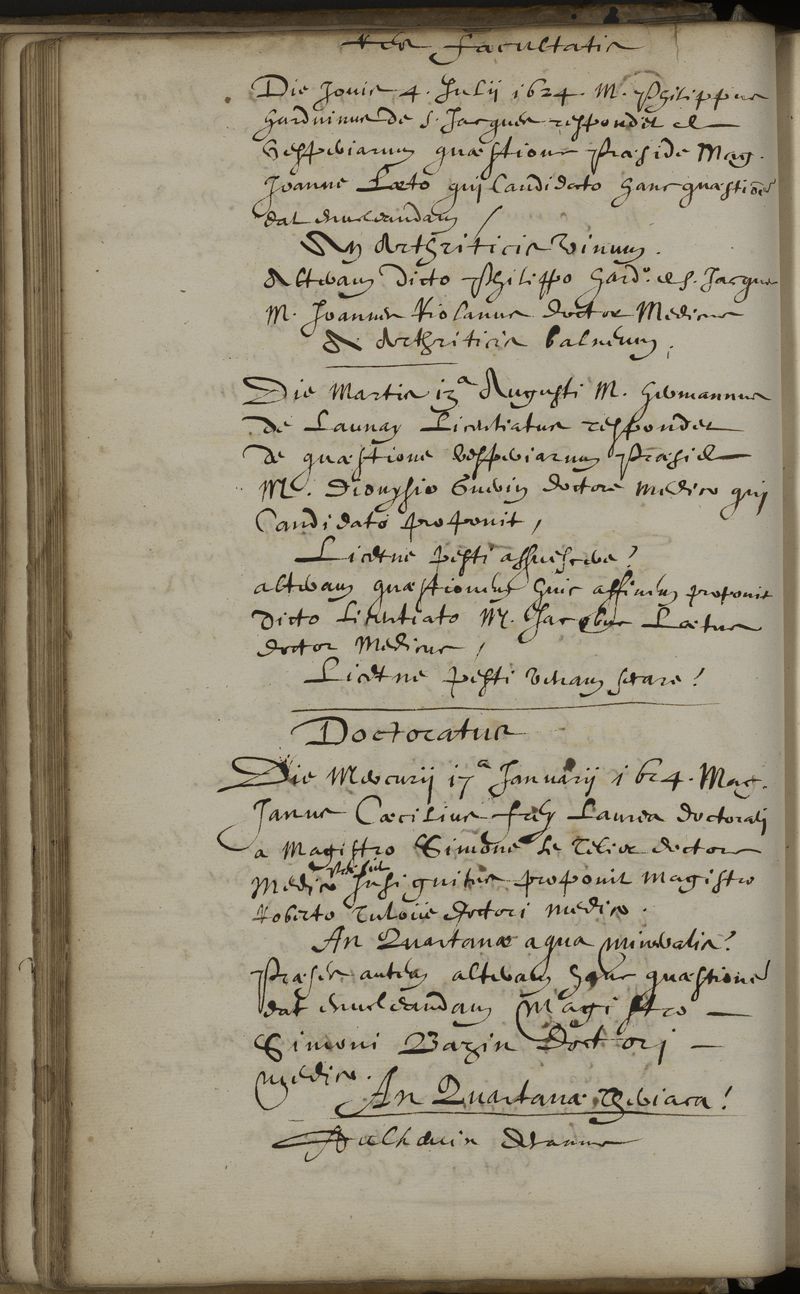 Res facultatis
Die Jovis 4. Julij 1624. M. Philippus
Harduinus de S. Jacques respondet de
Vesperiarum quæstione Præside Mag.
Joanne Læto qui Candidato hanc quæstionē
dat enucleandam /
An Arthriticis Vinum.
Alteram dicto Philippo Hard. de S. Jacques
M. Joannes Riolanus doctor Medicus
An Arthriticis balneum;
Die Martis 13ᵃ Augusti M. Hermannus
de Launay Licentiatus respondet
de quæstione vesperiarum Præside
M. Dionysio Guerin doctore medico qui
Candidato proponit,
Licetne pesti assuescere?
alteram quæstionem huic affinem proponit
dicto Licentiato M. Jacobus Lætus
doctor Medicus,
Licetne pesti venam secare?
Doctoratus
Die Mercurij 17ᵃ Januarij 1624. Mag.
Janus Cæcilius frey Laurea doctorali
a Magistro Simone Le Telier doctore
Medico præside Insignitus proponit magistro
Roberto Tuloüe doctori medico.
An Quartanæ aqua mineralis?
Præses autem alteram hanc quæstionē
dat enucleandam Magistro
Simoni Bazin Doctori
medico.
An Quartanæ theriaca?
decanus